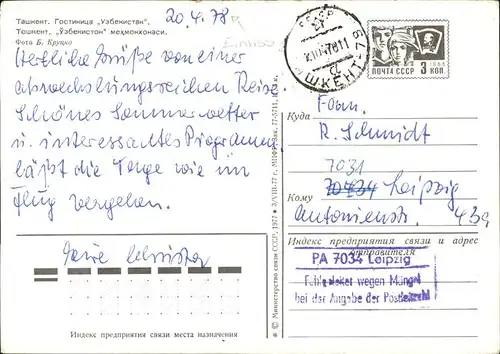 Ташкент. Гостиница „Узбекистан“.
Тошкент. „Ўзбекистон“ меҳмонхонаси.
Фото Б. Круцко
20.4.78
Herzliche Grüße von einer
abwechslungsreichen Reise.
Schönes Sommerwetter
u. interessantes Programm
läßt die Tage wie im
Flug vergehen.
Индекс предприятия связи места назначения
© Министерство связи СССР, 1977 3/VIII-77 г.
СССР
ШКЕНТ-79
ПОЧТА СССР 3 КОП.
1966
Fam.
Куда
R. Schmidt
7031
Кому 70434 Leipzig
Antonienstr. 43a
Индекс предприятия связи и адрес
отправителя
PA 7034 Leipzig
Fehlgeleitet wegen Mängel
bei der Angabe der Postleitzahl